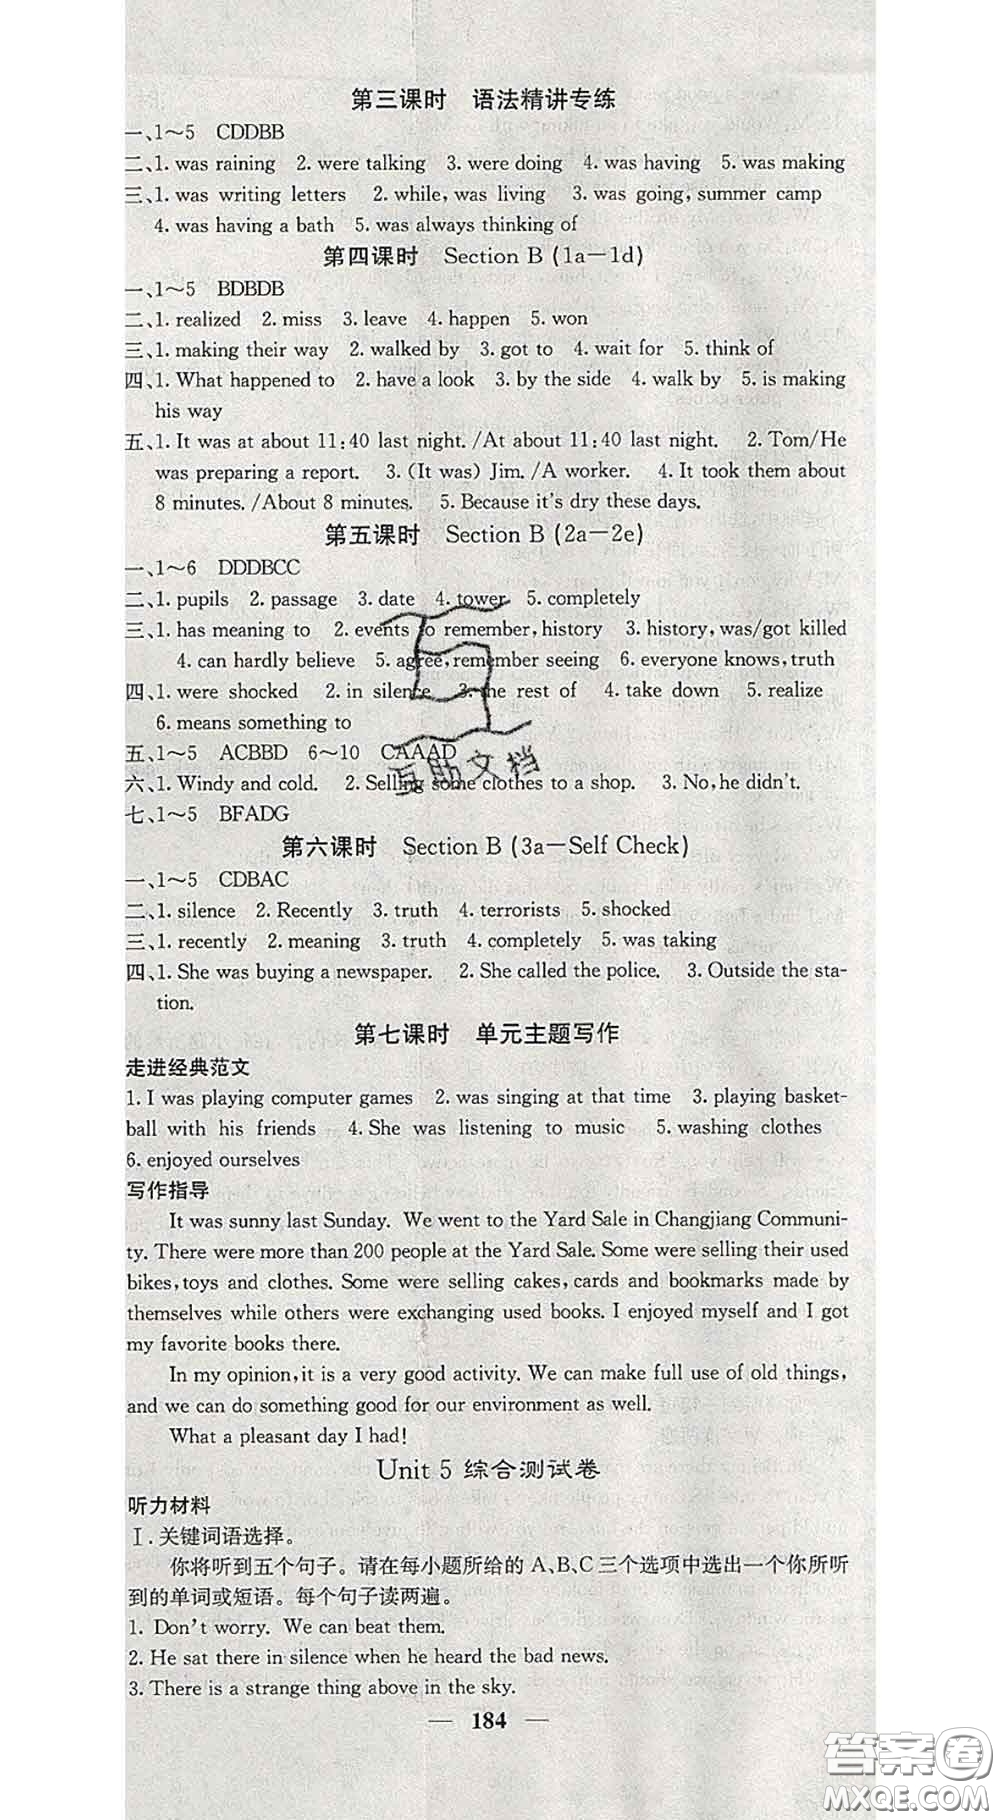 第三课时　语法精讲专练
一、1～5　CDDBB
二、1. was raining　2. were talking　3. were doing　4. was having　5. was making
三、1. was writing letters　2. while, was living　3. was going, summer camp
4. was having a bath　5. was always thinking of
第四课时　Section B (1a—1d)
一、1～5　BDBDB
二、1. realized　2. miss　3. leave　4. happen　5. won
三、1. making their way　2. walked by　3. got to　4. wait for　5. think of
四、1. What happened to　2. have a look　3. by the side　4. walk by　5. is making
his way
五、1. It was at about 11:40 last night. /At about 11:40 last night.　2. Tom/He
was preparing a report.　3. (It was) Jim. /A worker.　4. It took them about
8 minutes. /About 8 minutes.　5. Because it's dry these days.
第五课时　Section B (2a—2e)
一、1～6　DDDBCC
二、1. pupils　2. passage　3. date　4. tower　5. completely
三、1. has meaning to　2. events to remember, history　3. history, was/got killed
4. can hardly believe　5. agree, remember seeing　6. everyone knows, truth
四、1. were shocked　2. in silence　3. the rest of　4. take down　5. realize
6. means something to
五、1～5　ACBBD　6～10　CAAAD
互助文档
六、1. Windy and cold.　2. Selling some clothes to a shop.　3. No, he didn't.
七、1～5　BFADG
第六课时　Section B (3a—Self Check)
一、1～5　CDBAC
二、1. silence　2. Recently　3. truth　4. terrorists　5. shocked
三、1. recently　2. meaning　3. truth　4. completely　5. was taking
四、1. She was buying a newspaper.　2. She called the police.　3. Outside the sta-
tion.
第七课时　单元主题写作
走进经典范文
1. I was playing computer games　2. was singing at that time　3. playing basket-
ball with his friends　4. She was listening to music　5. washing clothes
6. enjoyed ourselves
写作指导
It was sunny last Sunday. We went to the Yard Sale in Changjiang Communi-
ty. There were more than 200 people at the Yard Sale. Some were selling their used
bikes, toys and clothes. Some were selling cakes, cards and bookmarks made by
themselves while others were exchanging used books. I enjoyed myself and I got
my favorite books there.
In my opinion, it is a very good activity. We can make full use of old things,
and we can do something good for our environment as well.
What a pleasant day I had!
Unit 5 综合测试卷
听力材料
Ⅰ. 关键词语选择。
你将听到五个句子。请在每小题所给的 A、B、C三个选项中选出一个你所听
到的单词或短语。每个句子读两遍。
1. Don't worry. We can beat them.
2. He sat there in silence when he heard the bad news.
3. There is a strange thing above in the sky.
— 184 —
答案圈
MXQE.COM